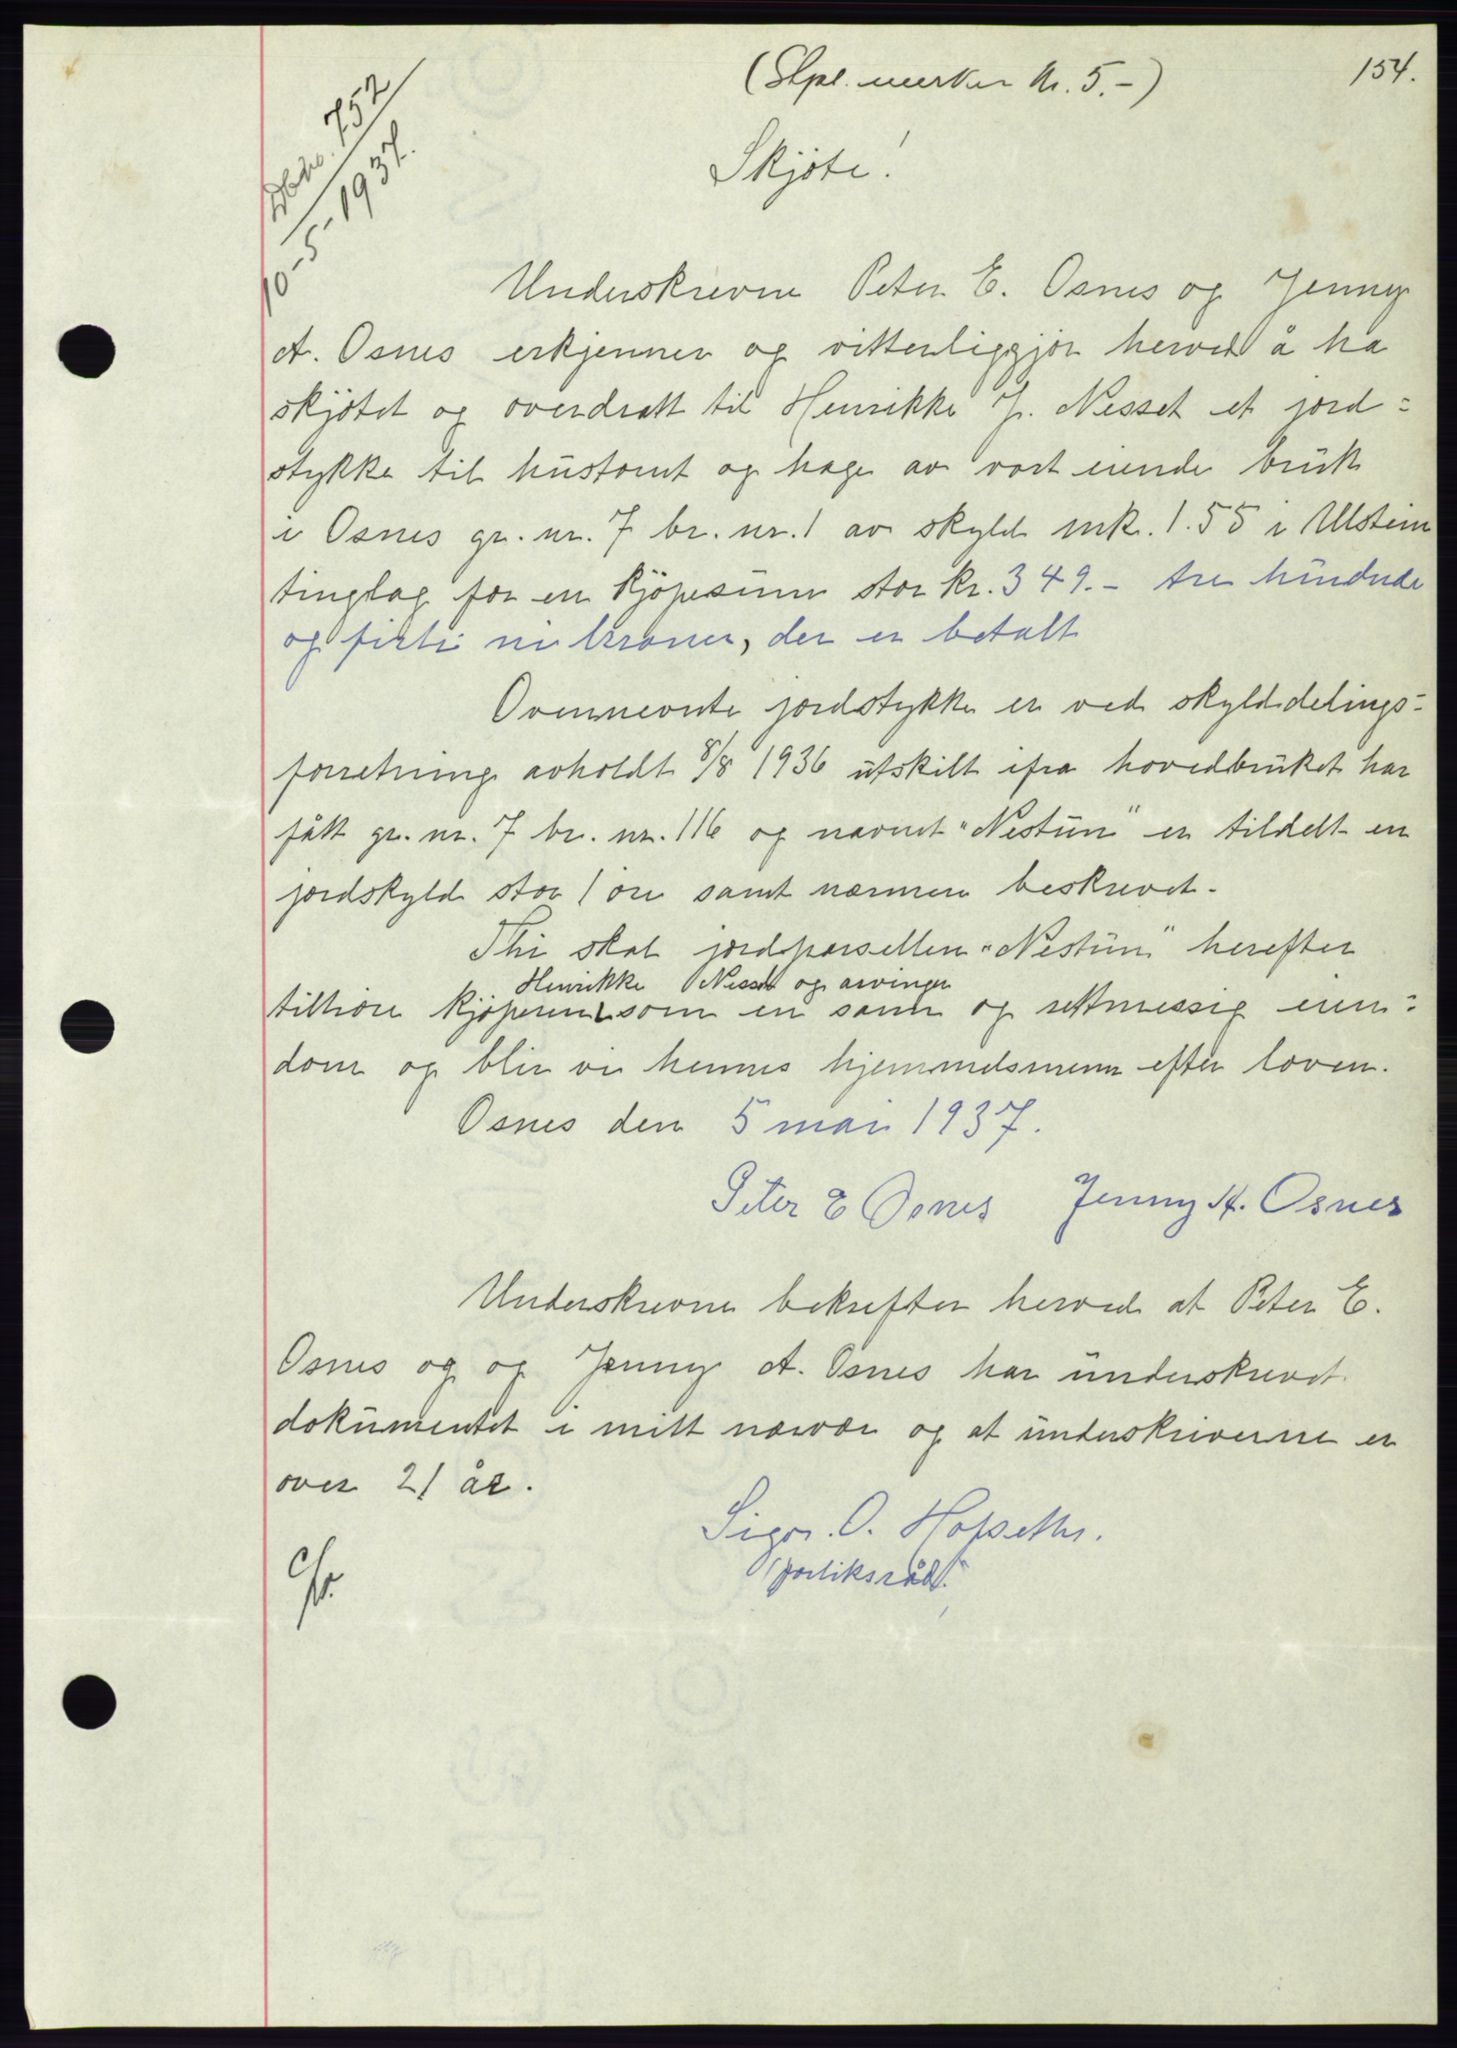 154.
(Stpl. merker kr. 5.-)
Dbnr. 752
10-5-1937.
Skjøte!
Underskrevne Peter E. Osnes og Jenny
A. Osnes erkjenner og vitterliggjör herved å ha
skjøtet og overdratt til Henrikke J. Nesset et jord=
stykke til hustomt og hage av vort eiende bruk
i Osnes gr. nr. 7 br. nr. 1 av skyld mk. 1.55 i Ulstein
tinglag for en kjöpesum stor kr. 349.- tre hundrede
og førti ni kroner, der er betalt
Ovennevnte jordstykke er ved skylddelings=
forretning avholdt 8/8 1936 utskilt ifra hovedbruket har
fått gr. nr. 7 br. nr. 116 og navnet "Nestun" er tildelt en
jordskyld stor 1 öre samt nærmere beskrevet.
Thi skal jordparsellen "Nestun" herefter
Henrikke Nesset og arvinger
tilhöre kjöperen som en sann og rettmessig eien=
dom og blir vi hennes hjemmelsmenn efter loven.
Osnes den 5 mai 1937.
Peter E Osnes Jenny A. Osnes
Underskrevne bekrefter herved at Peter E.
Osnes og og Jenny A. Osnes har underskrevet
dokumentet i mitt nærvær og at underskriverne er
over 21 år.
Sigv. O. Hopseth.